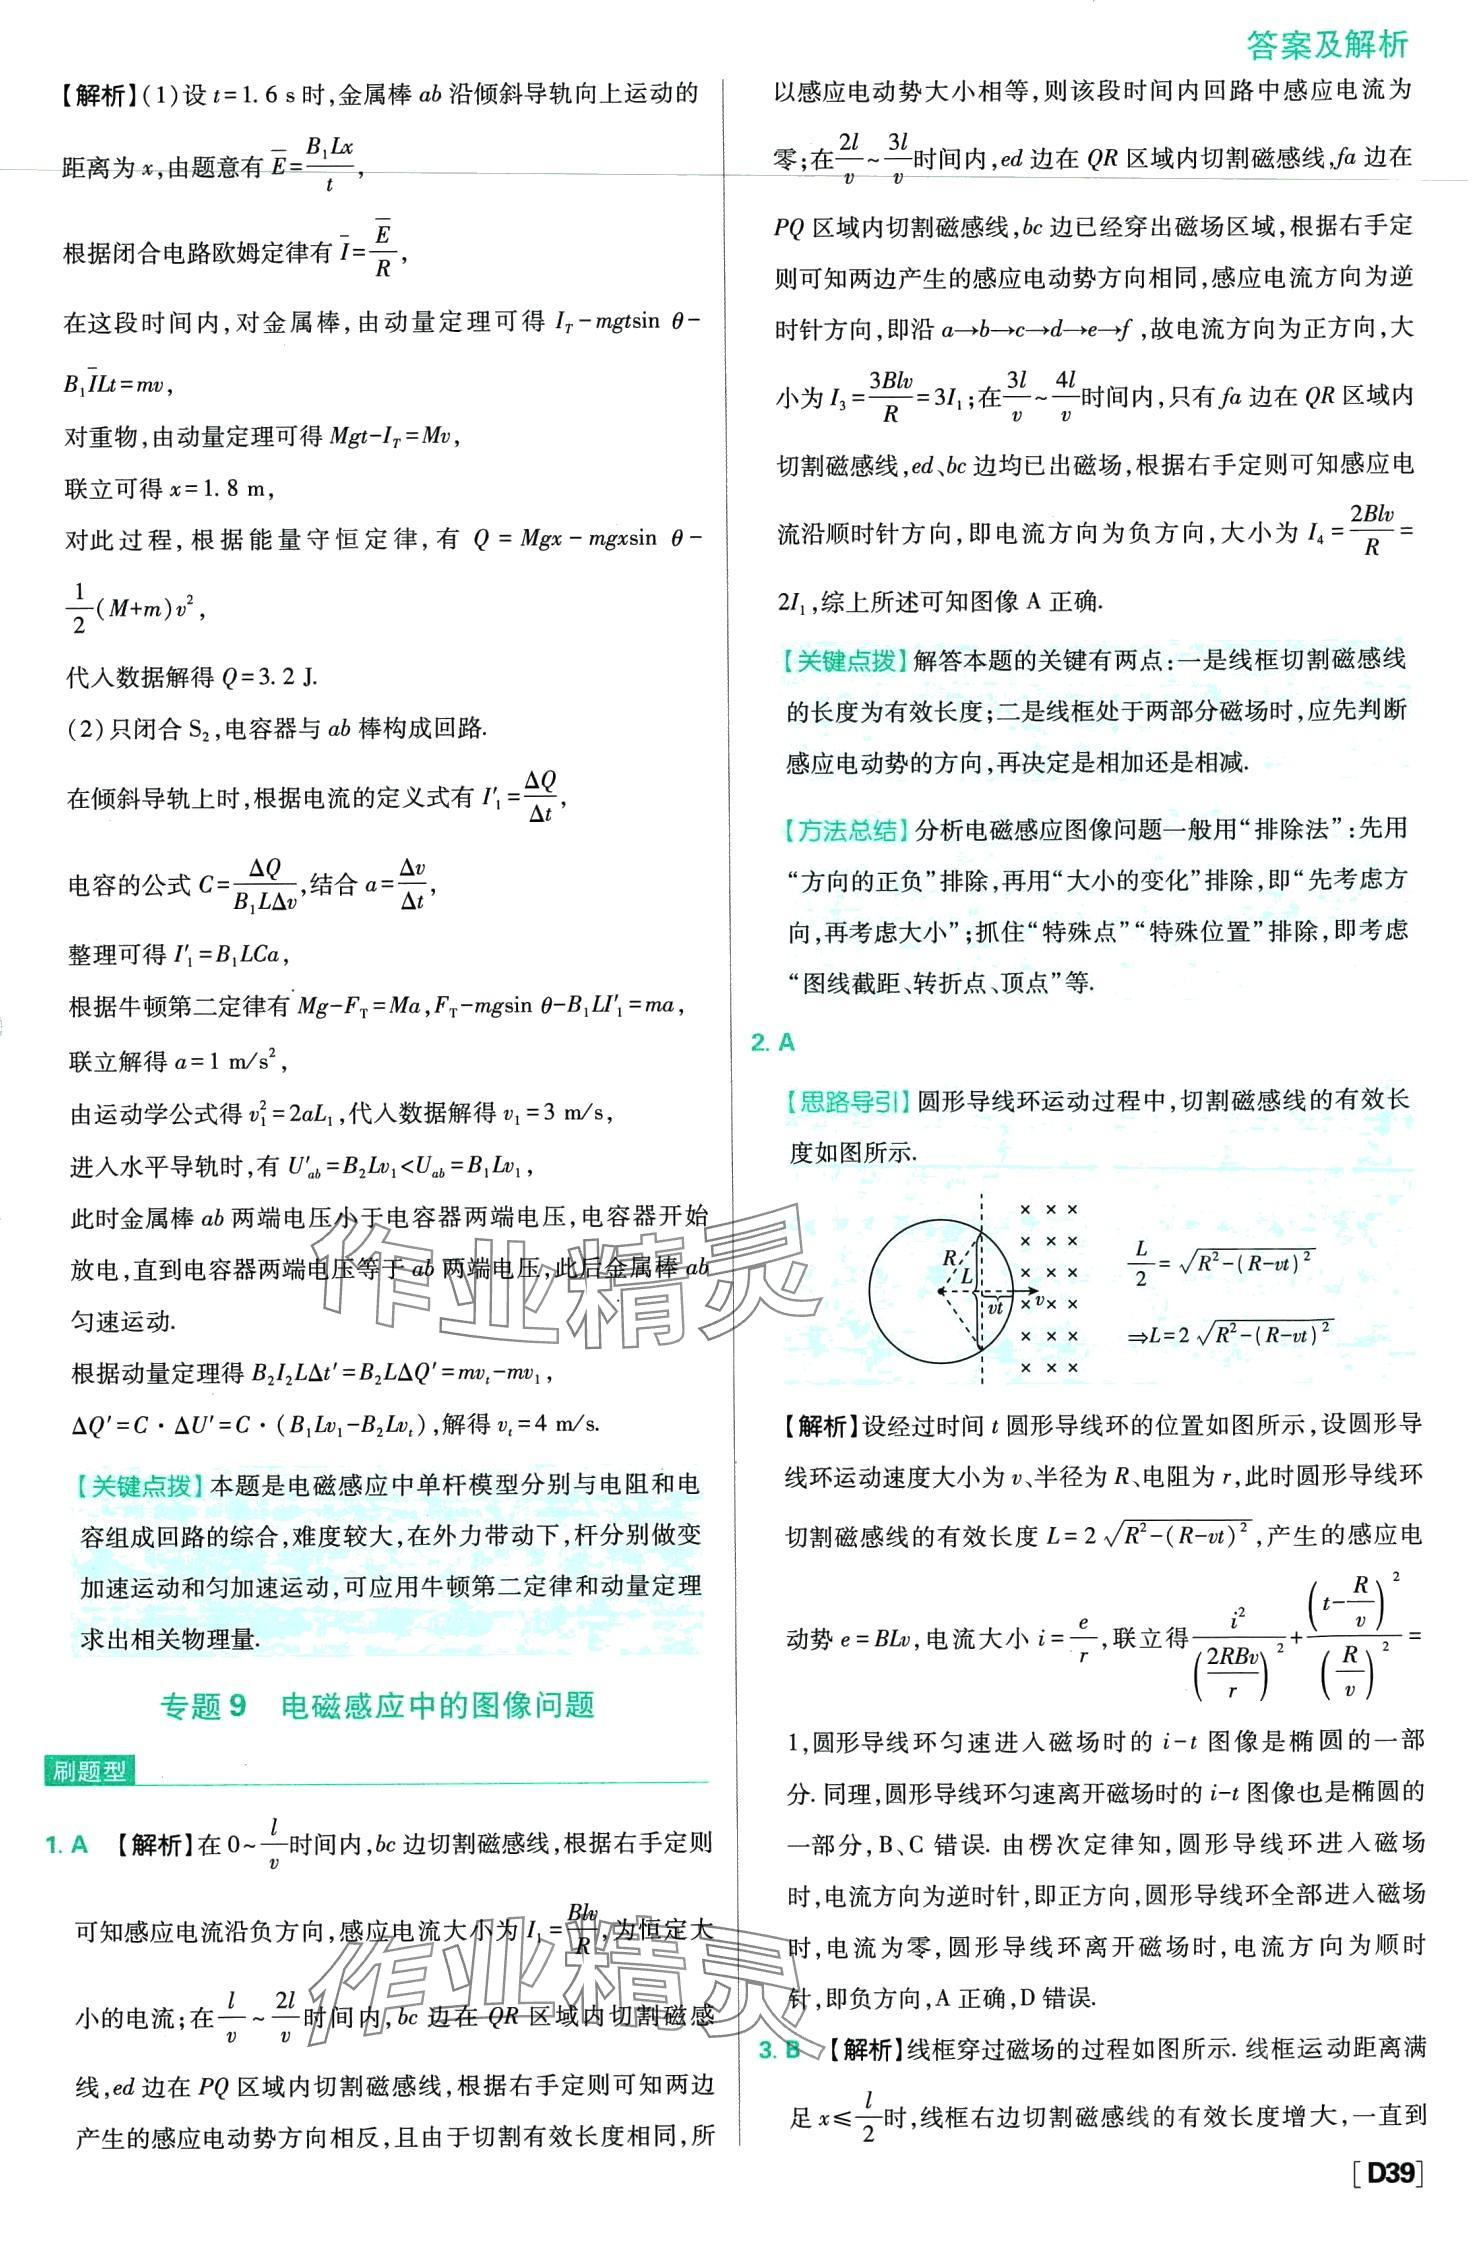 答案及解析
【解析】(1)设 t=1.6 s时,金属棒 ab 沿倾斜导轨向上运动的
距离为 x,由题意有 E̅=B₁Lx/t,
根据闭合电路欧姆定律有 I̅=E̅/R,
在这段时间内,对金属棒,由动量定理可得 I_T-mgtsin θ-
B₁I̅Lt=mv,
对重物,由动量定理可得 Mgt-I_T=Mv,
联立可得 x=1.8 m,
对此过程,根据能量守恒定律,有 Q=Mgx-mgxsin θ-
1/2(M+m)v²,
代入数据解得 Q=3.2 J.
(2)只闭合 S₂,电容器与 ab 棒构成回路.
在倾斜导轨上时,根据电流的定义式有 I′₁=ΔQ/Δt,
电容的公式 C=ΔQ/(B₁LΔv),结合 a=Δv/Δt,
整理可得 I′₁=B₁LCa,
根据牛顿第二定律有 Mg-F_T=Ma,F_T-mgsin θ-B₁LI′₁=ma,
联立解得 a=1 m/s²,
由运动学公式得 v₁²=2aL₁,代入数据解得 v₁=3 m/s,
进入水平导轨时,有 U′_ab=B₂Lv₁<U_ab=B₁Lv₁,
此时金属棒 ab 两端电压小于电容器两端电压,电容器开始
放电,直到电容器两端电压等于 ab 两端电压,此后金属棒 ab
匀速运动.
根据动量定理得 B₂I₂LΔt′=B₂LΔQ′=mv_t-mv₁,
ΔQ′=C·ΔU′=C·(B₁Lv₁-B₂Lv_t),解得 v_t=4 m/s.
【关键点拨】本题是电磁感应中单杆模型分别与电阻和电
容组成回路的综合,难度较大,在外力带动下,杆分别做变
加速运动和匀加速运动,可应用牛顿第二定律和动量定理
求出相关物理量.
专题9 电磁感应中的图像问题
刷题型
1. A 【解析】在 0~l/v时间内,bc 边切割磁感线,根据右手定则
可知感应电流沿负方向,感应电流大小为 I₁=Blv/R,为恒定大
小的电流;在l/v~2l/v时间内,bc 边在 QR 区域内切割磁感
线,ed 边在 PQ 区域内切割磁感线,根据右手定则可知两边
产生的感应电动势方向相反,且由于切割有效长度相同,所
以感应电动势大小相等,则该段时间内回路中感应电流为
零;在2l/v~3l/v时间内,ed 边在 QR 区域内切割磁感线,fa 边在
PQ 区域内切割磁感线,bc 边已经穿出磁场区域,根据右手定
则可知两边产生的感应电动势方向相同,感应电流方向为逆
时针方向,即沿 a→b→c→d→e→f,故电流方向为正方向,大
小为 I₃=3Blv/R=3I₁;在3l/v~4l/v时间内,只有 fa 边在 QR 区域内
切割磁感线,ed、bc 边均已出磁场,根据右手定则可知感应电
流沿顺时针方向,即电流方向为负方向,大小为 I₄=2Blv/R=
2I₁,综上所述可知图像 A 正确.
【关键点拨】解答本题的关键有两点:一是线框切割磁感线
的长度为有效长度;二是线框处于两部分磁场时,应先判断
感应电动势的方向,再决定是相加还是相减.
【方法总结】分析电磁感应图像问题一般用“排除法”:先用
“方向的正负”排除,再用“大小的变化”排除,即“先考虑方
向,再考虑大小”;抓住“特殊点”“特殊位置”排除,即考虑
“图线截距、转折点、顶点”等.
2. A
【思路导引】圆形导线环运动过程中,切割磁感线的有效长
度如图所示.
R L vt v
L/2=√(R²-(R-vt)²)
⇒L=2√(R²-(R-vt)²)
【解析】设经过时间 t 圆形导线环的位置如图所示,设圆形导
线环运动速度大小为 v、半径为 R、电阻为 r,此时圆形导线环
切割磁感线的有效长度 L=2√(R²-(R-vt)²),产生的感应电
动势 e=BLv,电流大小 i=e/r,联立得i²/(2RBv/r)²+(t-R/v)²/(R/v)²=
1,圆形导线环匀速进入磁场时的 i-t 图像是椭圆的一部
分.同理,圆形导线环匀速离开磁场时的 i-t 图像也是椭圆的
一部分,B、C 错误.由楞次定律知,圆形导线环进入磁场
时,电流方向为逆时针,即正方向,圆形导线环全部进入磁场
时,电流为零,圆形导线环离开磁场时,电流方向为顺时
针,即负方向,A 正确,D 错误.
3. B 【解析】线框穿过磁场的过程如图所示.线框运动距离满
足 x≤l/2时,线框右边切割磁感线的有效长度增大,一直到
[D39]
作业精灵
作业精灵